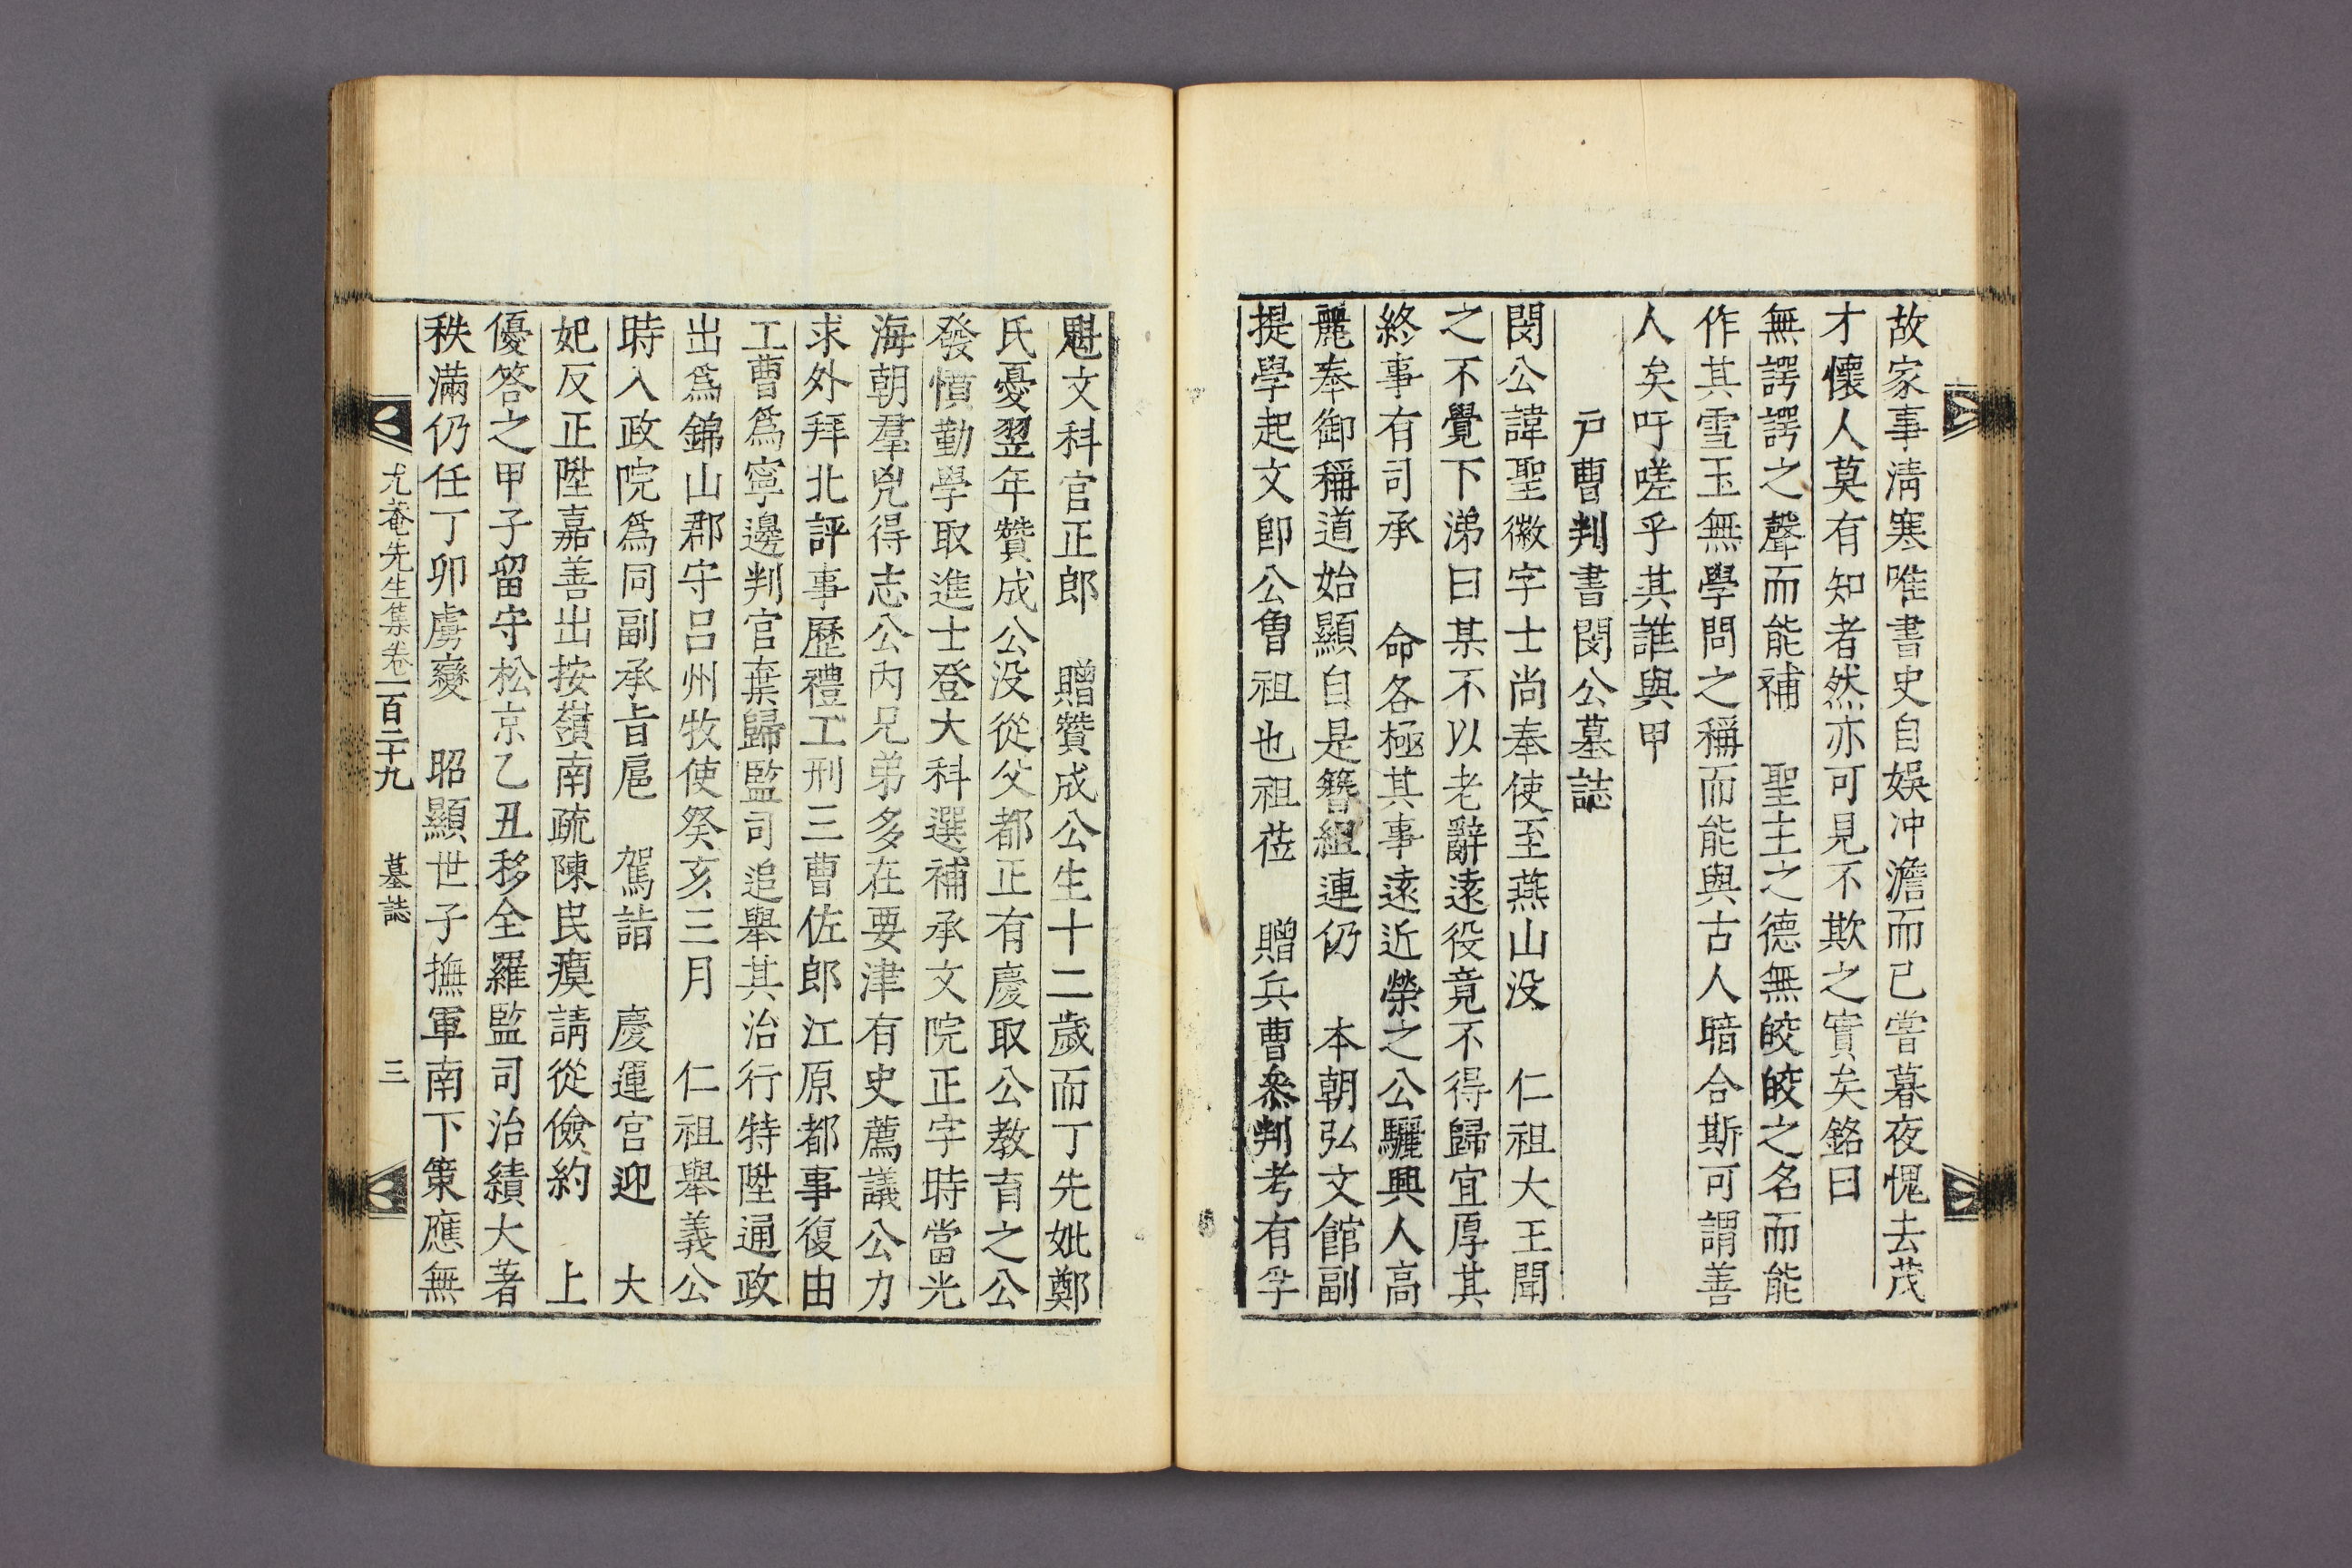 故家事淸寒唯書史自娛冲澹而已嘗暮夜愧去茂
才懷人莫有知者然亦可見不欺之實矣銘曰
無諤諤之聲而能補　聖主之德無皎皎之名而能
作其雪玉無學問之稱而能與古人暗合斯可謂善
人矣吁嗟乎其誰與甲
戶曹判書閔公墓誌
閔公諱聖徽字士尙奉使至燕山没　仁祖大王聞
之不覺下涕曰某不以老辭遠役竟不得歸宜厚其
終事有司承　命各極其事遠近榮之公驪興人高
麗奉御稱道始顯自是簪組連仍　本朝弘文館副
提學起文卽公曾祖也祖莅　贈兵曹叅判考有孚
魁文科官正郎　贈贊成公生十二歲而丁先妣鄭
氏憂翌年贊成公没從父都正有慶取公教育之公
發憤勤學取進士登大科選補承文院正字時當光
海朝羣兇得志公內兄弟多在要津有史薦議公力
求外拜北評事歷禮工刑三曹佐郎江原都事復由
工曹爲寧邊判官棄歸監司追舉其治行特陞通政
出爲錦山郡守呂州牧使癸亥三月　仁祖舉義公
時入政院爲同副承旨扈　駕詣　慶運宮迎　大
妃反正陞嘉善出按嶺南疏陳民瘼請從儉約　上
優答之甲子留守松京乙丑移全羅監司治績大著
秩滿仍任丁卯虜變　昭顯世子撫軍南下策應無
尤菴先生集卷一百二十九　墓誌　三